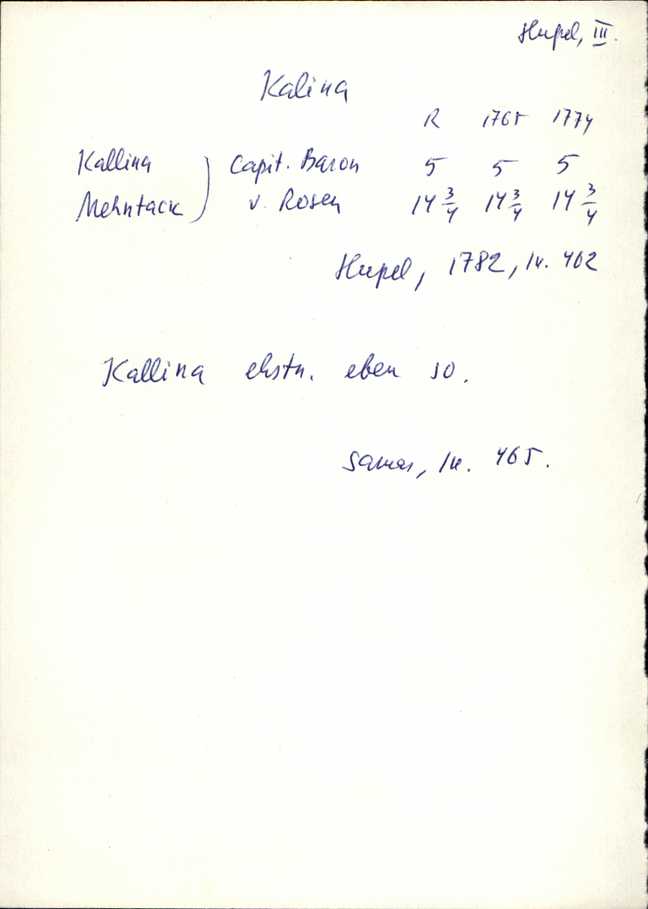 Hupel, III.
Kalina
R 1765 1774
Kallina ) Capit. Baron 5 5 5
Mehntack ) v. Rosen 14 3/4 14 3/4 14 3/4
Hupel, 1782, lk. 462
Kallina ehstn. eben so.
Samas, lk. 465.